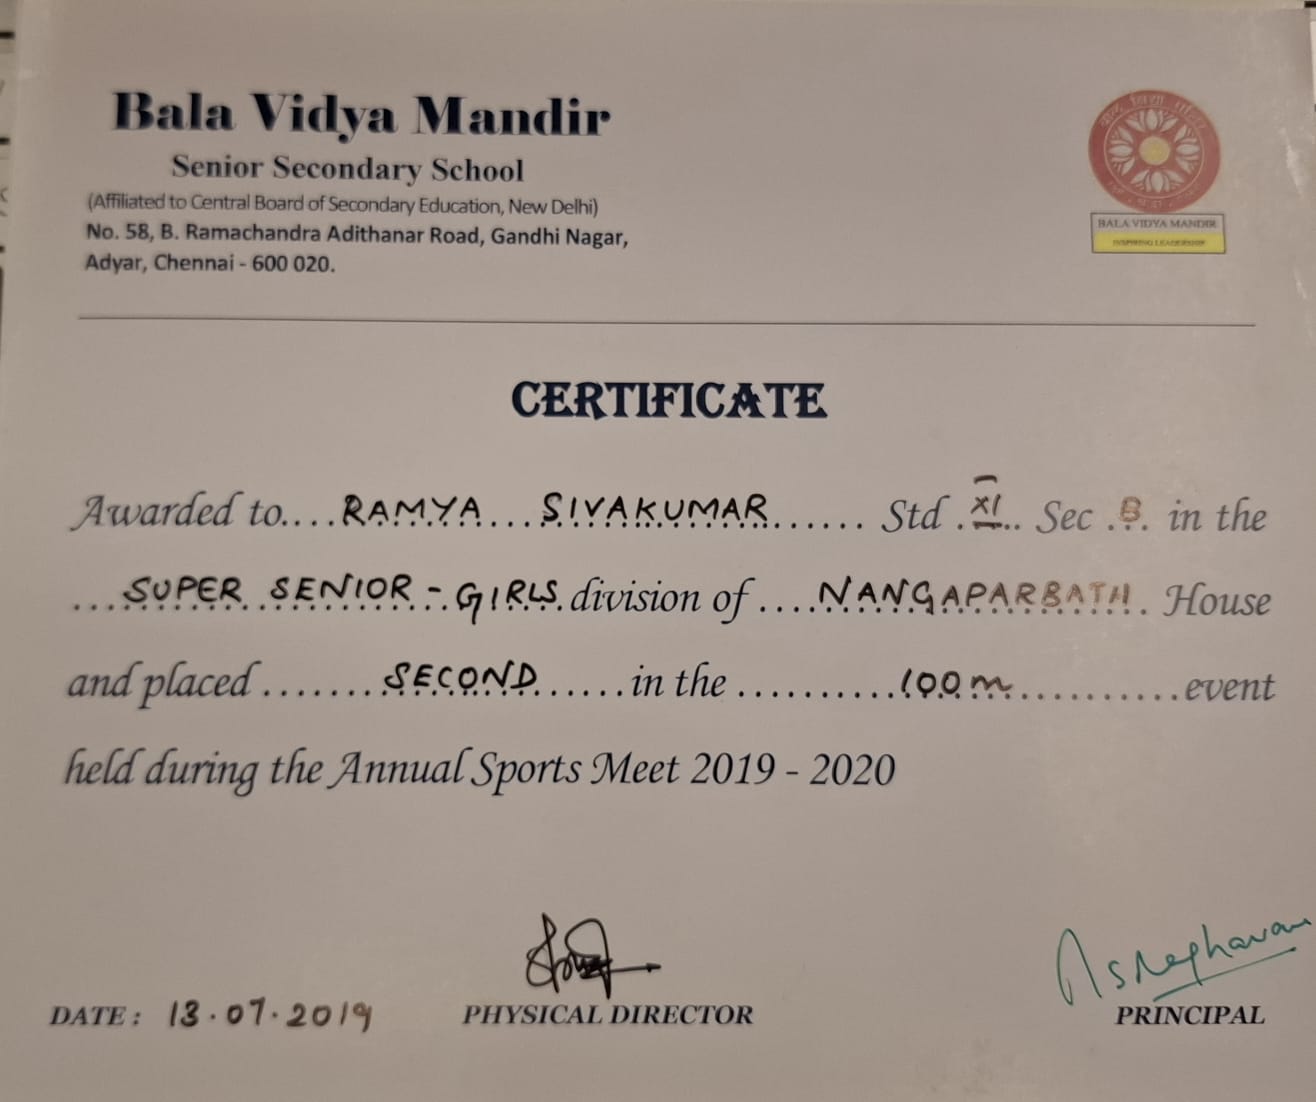 Bala Vidya Mandir
Senior Secondary School
(Affiliated to Central Board of Secondary Education, New Delhi)
No. 58, B. Ramachandra Adithanar Road, Gandhi Nagar,
Adyar, Chennai - 600 020.
BALA VIDYA MANDIR
INSPIRING LEADERSHIP
CERTIFICATE
Awarded to....RAMYA...SIVAKUMAR...... Std .XI.. Sec .B. in the
...SUPER SENIOR - GIRLS. division of ....NANGAPARBATH. House
and placed .......SECOND......in the ..........100m...........event
held during the Annual Sports Meet 2019 - 2020
DATE : 13.07.2019
PHYSICAL DIRECTOR
PRINCIPAL